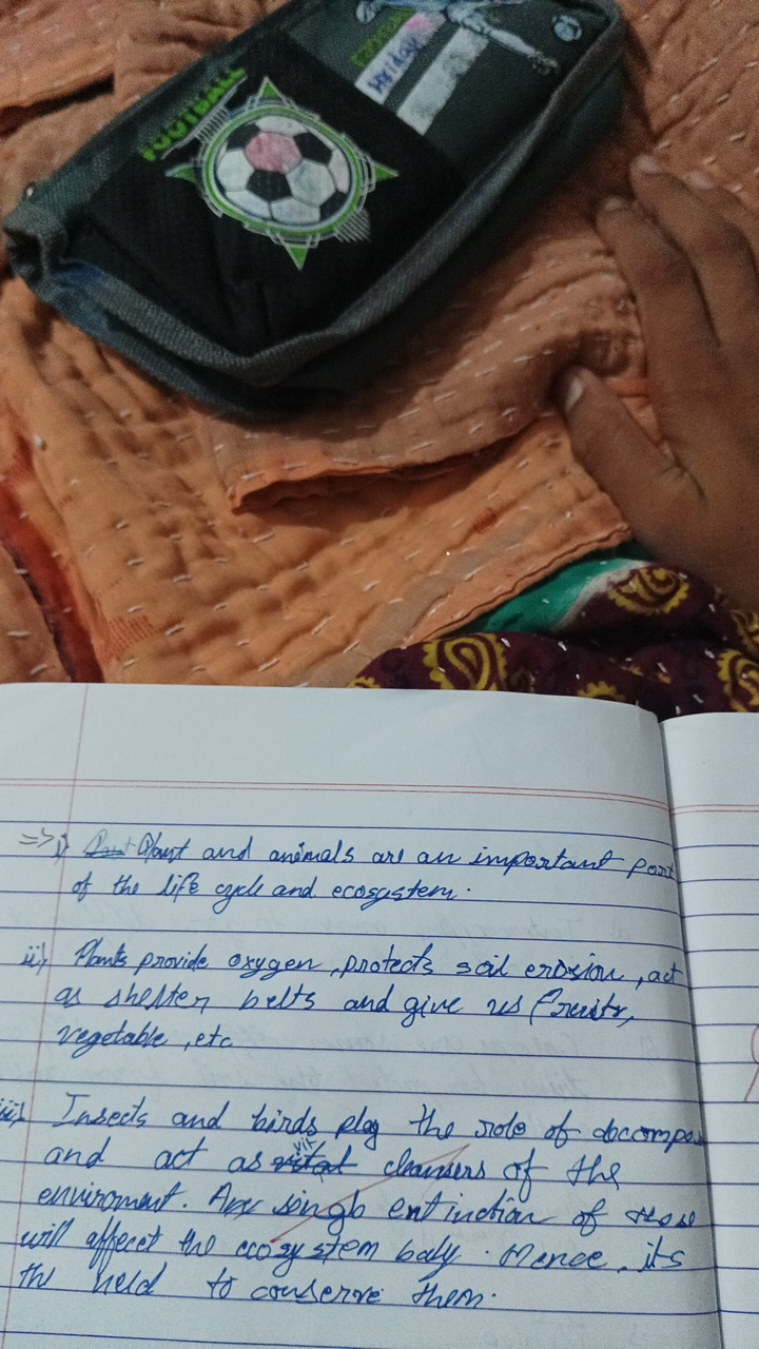 FOOTBALL
=> i) Plant and animals are an important part
of the life cycle and ecosystem.
ii) Plants provide oxygen, protects soil erosion, act
as shelter belts and give us fruits,
vegetable, etc
iii) Insects and birds play the role of docompos
and act as vital cleansers of the
enviroment. Any singls extinction of those
will affecet the ecosystem baly. Hence, its
the need to conserve them.